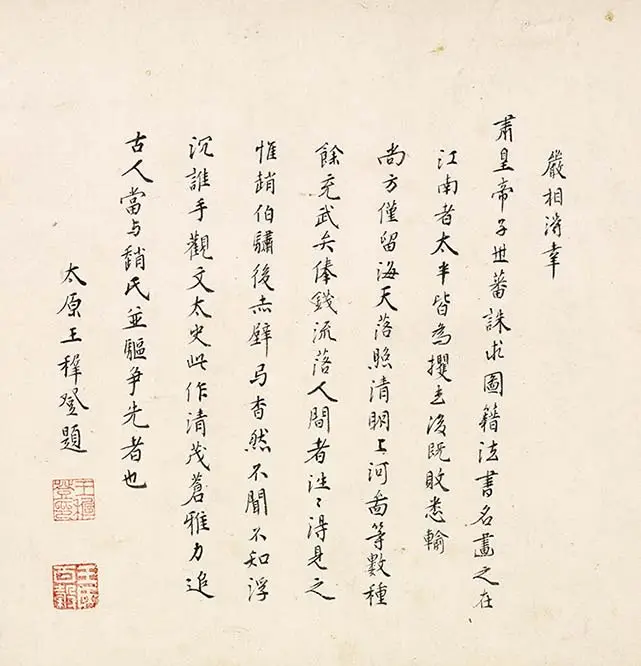 嚴相得幸
肅皇帝子世蕃誅求圖籍法書名畫之在
江南者太半皆為攫去後既敗悉輸
尚方僅留海天落照清明上河啚等數種
餘充武弁俸錢流落人間者往〻得見之
惟趙伯驌後赤壁乃杳然不聞不知浮
沉誰手觀文太史此作清茂蒼雅力追
古人當与趙氏並驅爭先者也
太原王穉登題
王穉登印
王氏百穀